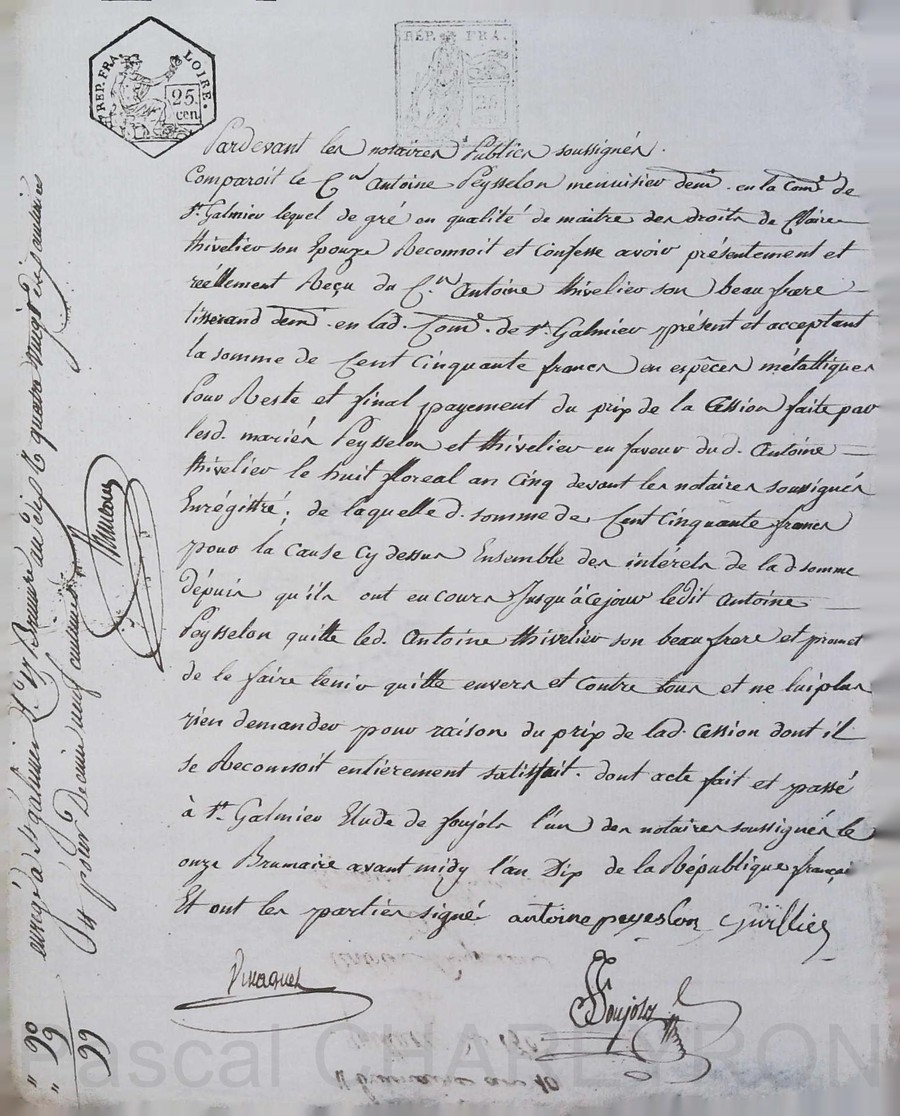 REP. FRA. LOIRE.
25 cen
RÉP. FRA.
Pardevant les notaires Publics soussignés.
Comparoit le C.en Antoine Peysselon menuisier demt. en la Come. de
St. Galmier lequel de gré en qualité de maitre des droits de Claire
thivelier son Epouze Reconnoit et Confesse avoir présentement et
réellement Reçu du C.en Antoine thivelier son beau frere
tisserand demt. en lad. Come. de St. Galmier présent et acceptant
la somme de Cent Cinquante francs en espèces métalliques
Pour Reste et final payement du prix de la Cession faite par
lesd. mariés Peysselon et thivelier en faveur dud. Antoine
thivelier le huit floreal an cinq devant les notaires soussignés
Enrégistré; de laquelle d. somme de Cent Cinquante francs
pour la Cause Cy dessus Ensemble des intérets de lad somme
dépuis qu'ils ont en cours Jusqu'à ce jour ledit Antoine
Peysselon quitte led. Antoine thivelier son beau frere et promet
de le faire tenir quitte envers et Contre tous et ne lui plus
rien demander pour raison du prix de lad. Cession dont il
se Reconnoit entièrement satisfait. dont acte fait et passé
à St. Galmier Etude de foujols l'un des notaires soussignés le
onze Brumaire avant midy l'an Dix de la République françai
Et ont les parties signé antoine peyeslon
foujols
enregé à St galmier Brumaire an dix
Un franc
99
99
11 brumaire an 10
Pascal CHAREYRON